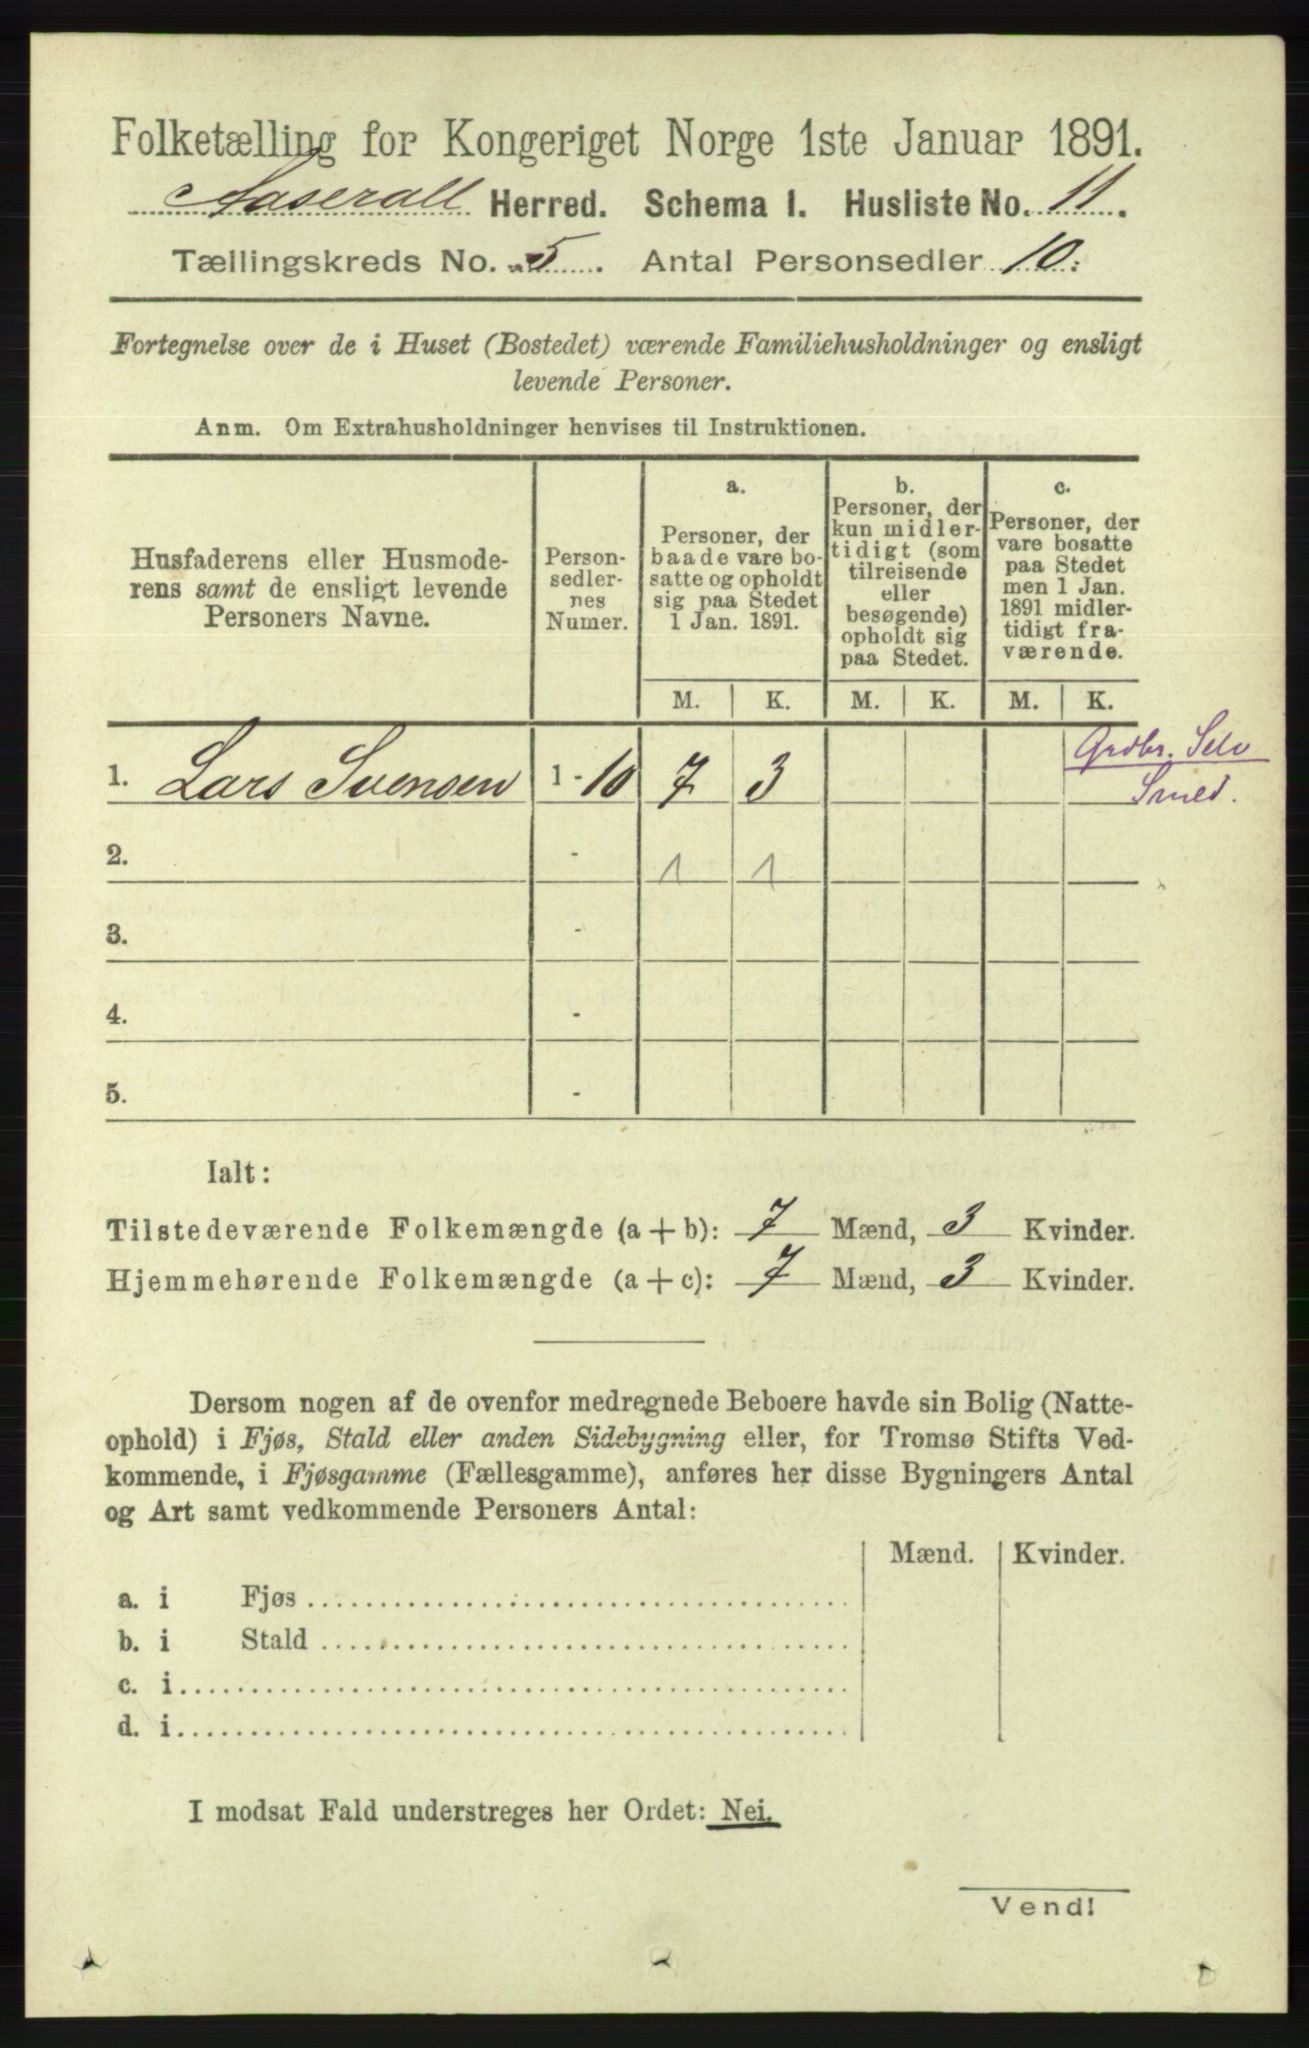 Folketælling for Kongeriget Norge 1ste Januar 1891.
Aaserall Herred. Schema I. Husliste No. 11.
Tællingskreds No. 5. Antal Personsedler 10.
Fortegnelse over de i Huset (Bostedet) værende Familiehusholdninger og ensligt
levende Personer.
Anm. Om Extrahusholdninger henvises til Instruktionen.
Husfaderens eller Husmode-
rens samt de ensligt levende
Personers Navne.
Person-
sedler-
nes
Numer.
a.
Personer, der
baade vare bo-
satte og opholdt
sig paa Stedet
1 Jan. 1891.
b.
Personer, der
kun midler-
tidigt (som
tilreisende
eller
besøgende)
opholdt sig
paa Stedet.
c.
Personer, der
vare bosatte
paa Stedet
men 1 Jan.
1891 midler-
tidigt fra-
værende.
M. K. M. K. M. K.
1. Lars Svensen 1 - 10 7 3
Grdbr. Selv
Smed.
2. - 1 1
3. -
4. -
5. -
Ialt:
Tilstedeværende Folkemængde (a + b): 7 Mænd, 3 Kvinder.
Hjemmehørende Folkemængde (a + c): 7 Mænd, 3 Kvinder.
Dersom nogen af de ovenfor medregnede Beboere havde sin Bolig (Natte-
ophold) i Fjøs, Stald eller anden Sidebygning eller, for Tromsø Stifts Ved-
kommende, i Fjøsgamme (Fællesgamme), anføres her disse Bygningers Antal
og Art samt vedkommende Personers Antal:
Mænd. Kvinder.
a. i Fjøs
b. i Stald
c. i
d. i
I modsat Fald understreges her Ordet: Nei.
Vend!